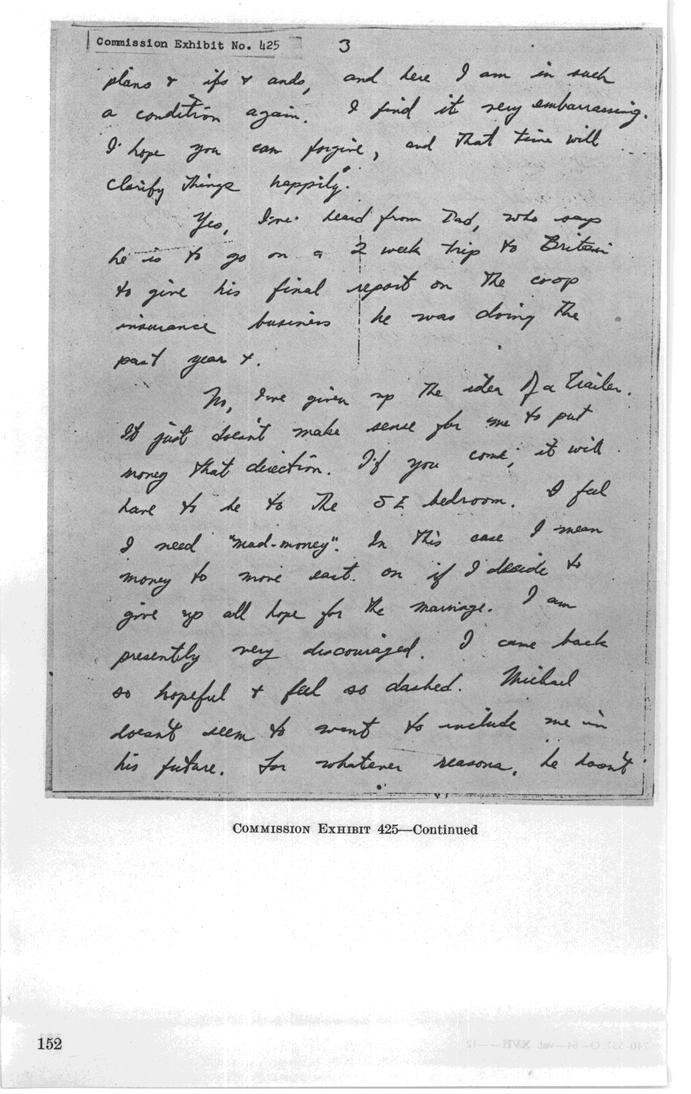 Commission Exhibit No. 425
3
plans & ifs & ands, and here I am in such
a condition again. I find it very embarrassing.
I hope you can forgive, and that time will
clarify things happily.
Yes, I've heard from Dad, who says
he is to go on a 2 week trip to Britain
to give his final report on the coop
insurance business he was doing the
past year &.
No, I've given up the idea of a trailer.
It just doesn't make sense for me to put
money that direction. If you come, it will
have to be to the SE bedroom. I feel
I need "mad-money". In this case I mean
money to move east on if I decide to
give up all hope for the marriage. I am
presently very discouraged. I came back
so hopeful & feel so dashed. Michael
doesn't seem to want to include me in
his future. For whatever reasons, he hasn't
COMMISSION EXHIBIT 425—Continued
152